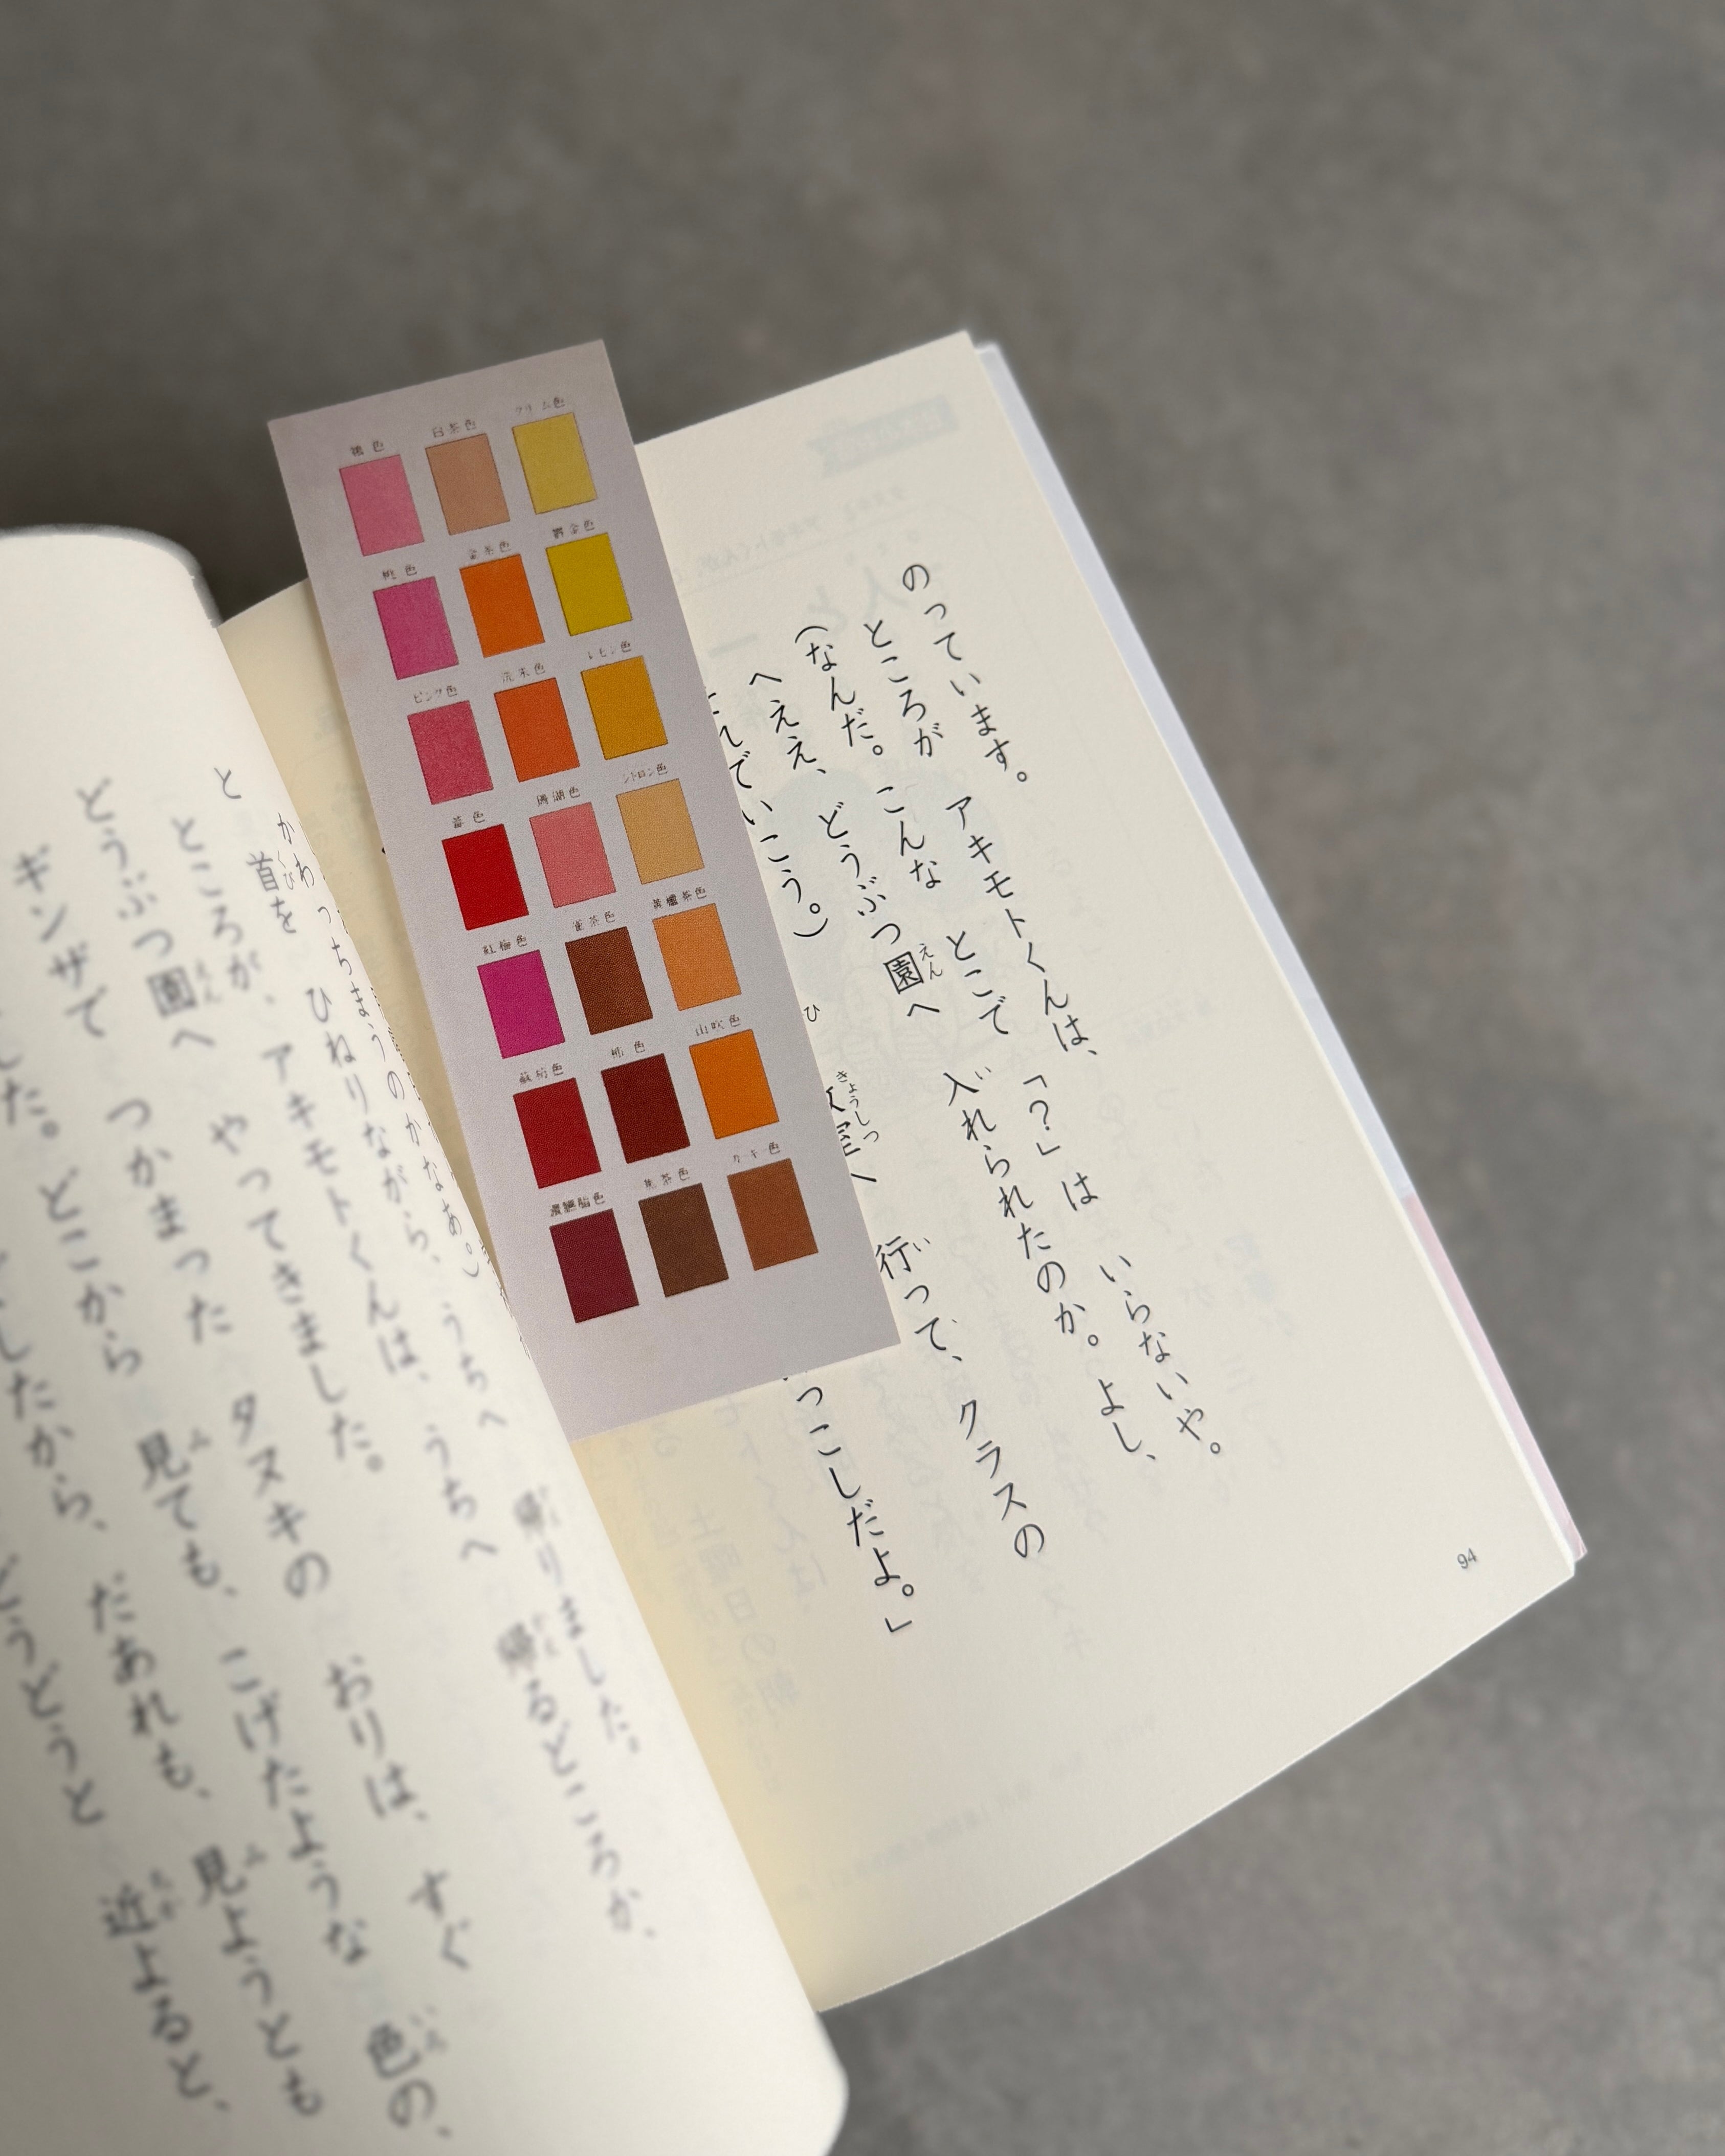 のっています。
ところが アキモトくんは、「？」は いらないや。
(なんだ。こんな とこで 入れられたのか。よし、
へええ、どうぶつ園へ
れでいこう。)
室へ 行って、クラスの
っこしだよ。」
94
桃色
ピンク色
紅梅色
白茶色
金茶色
珊瑚色
雀茶色
クリーム色
鬱金色
レモン色
シトロン色
黄櫨茶色
山吹色
カーキ色
かわっちまうのかなあ。)
首を ひねりながら、うちへ 帰りました。
と
ところが、アキモトくんは、うちへ 帰るどころか、
どうぶつ園へ やってきました。
ギンザで つかまった タヌキの おりは、すぐ
した。どこから 見ても、こげたような 色の、
したから、だあれも、見ようとも
どうどうと 近よると、